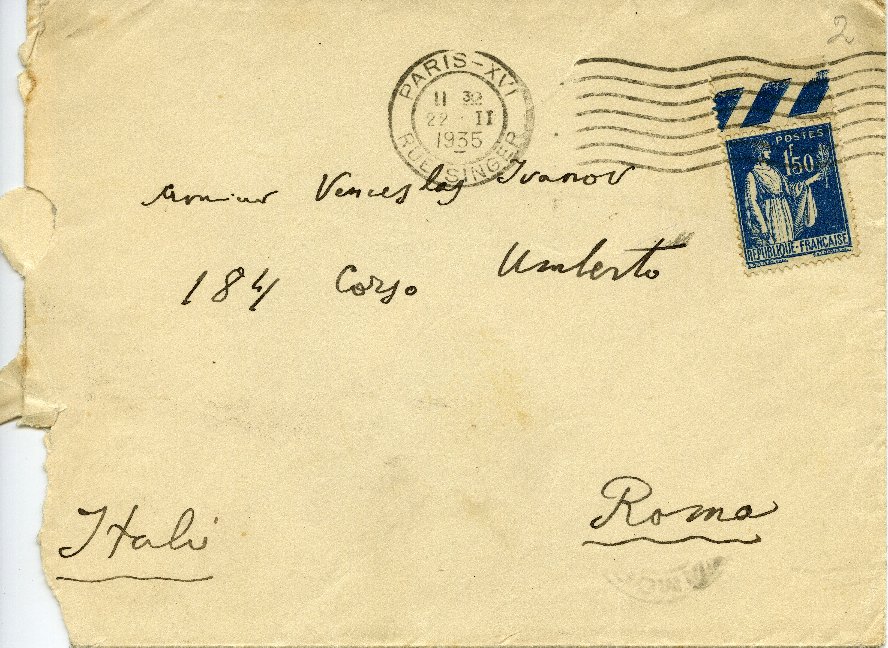 2
PARIS-XVI
11 30
22 · II
1935
RUE SINGER
POSTES
1F50
REPUBLIQUE-FRANÇAISE
Monsieur Venceslas Ivanov
184 Corso Umberto
Roma
Italie